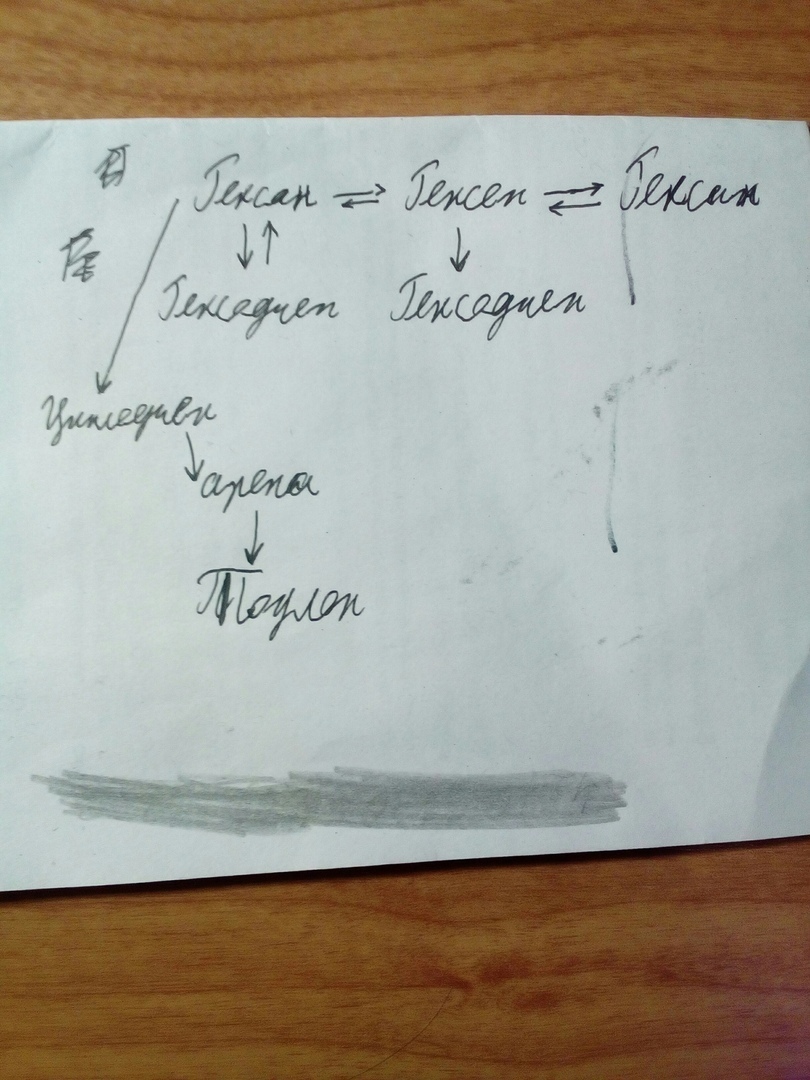 Гексан ⇌ Гексен ⇌ Гексин
↓↑ ↓
Гексадиен Гексадиен
Циклодиен
↓
арена
↓
Тоулол